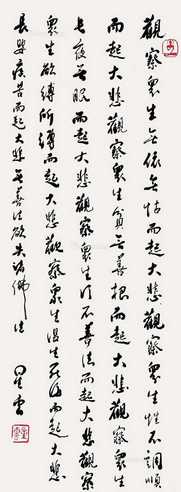 觀察眾生無依無怙而起大悲觀察眾生性不調順
而起大悲觀察眾生貧無善根而起大悲觀察眾生
長夜眠而起大悲觀察眾生行不善法而起大悲觀察
眾生欲縛所縛而起大悲觀察眾生生死海而起大悲
長嬰疾苦而起大悲無善法欲失諸佛法
星雲